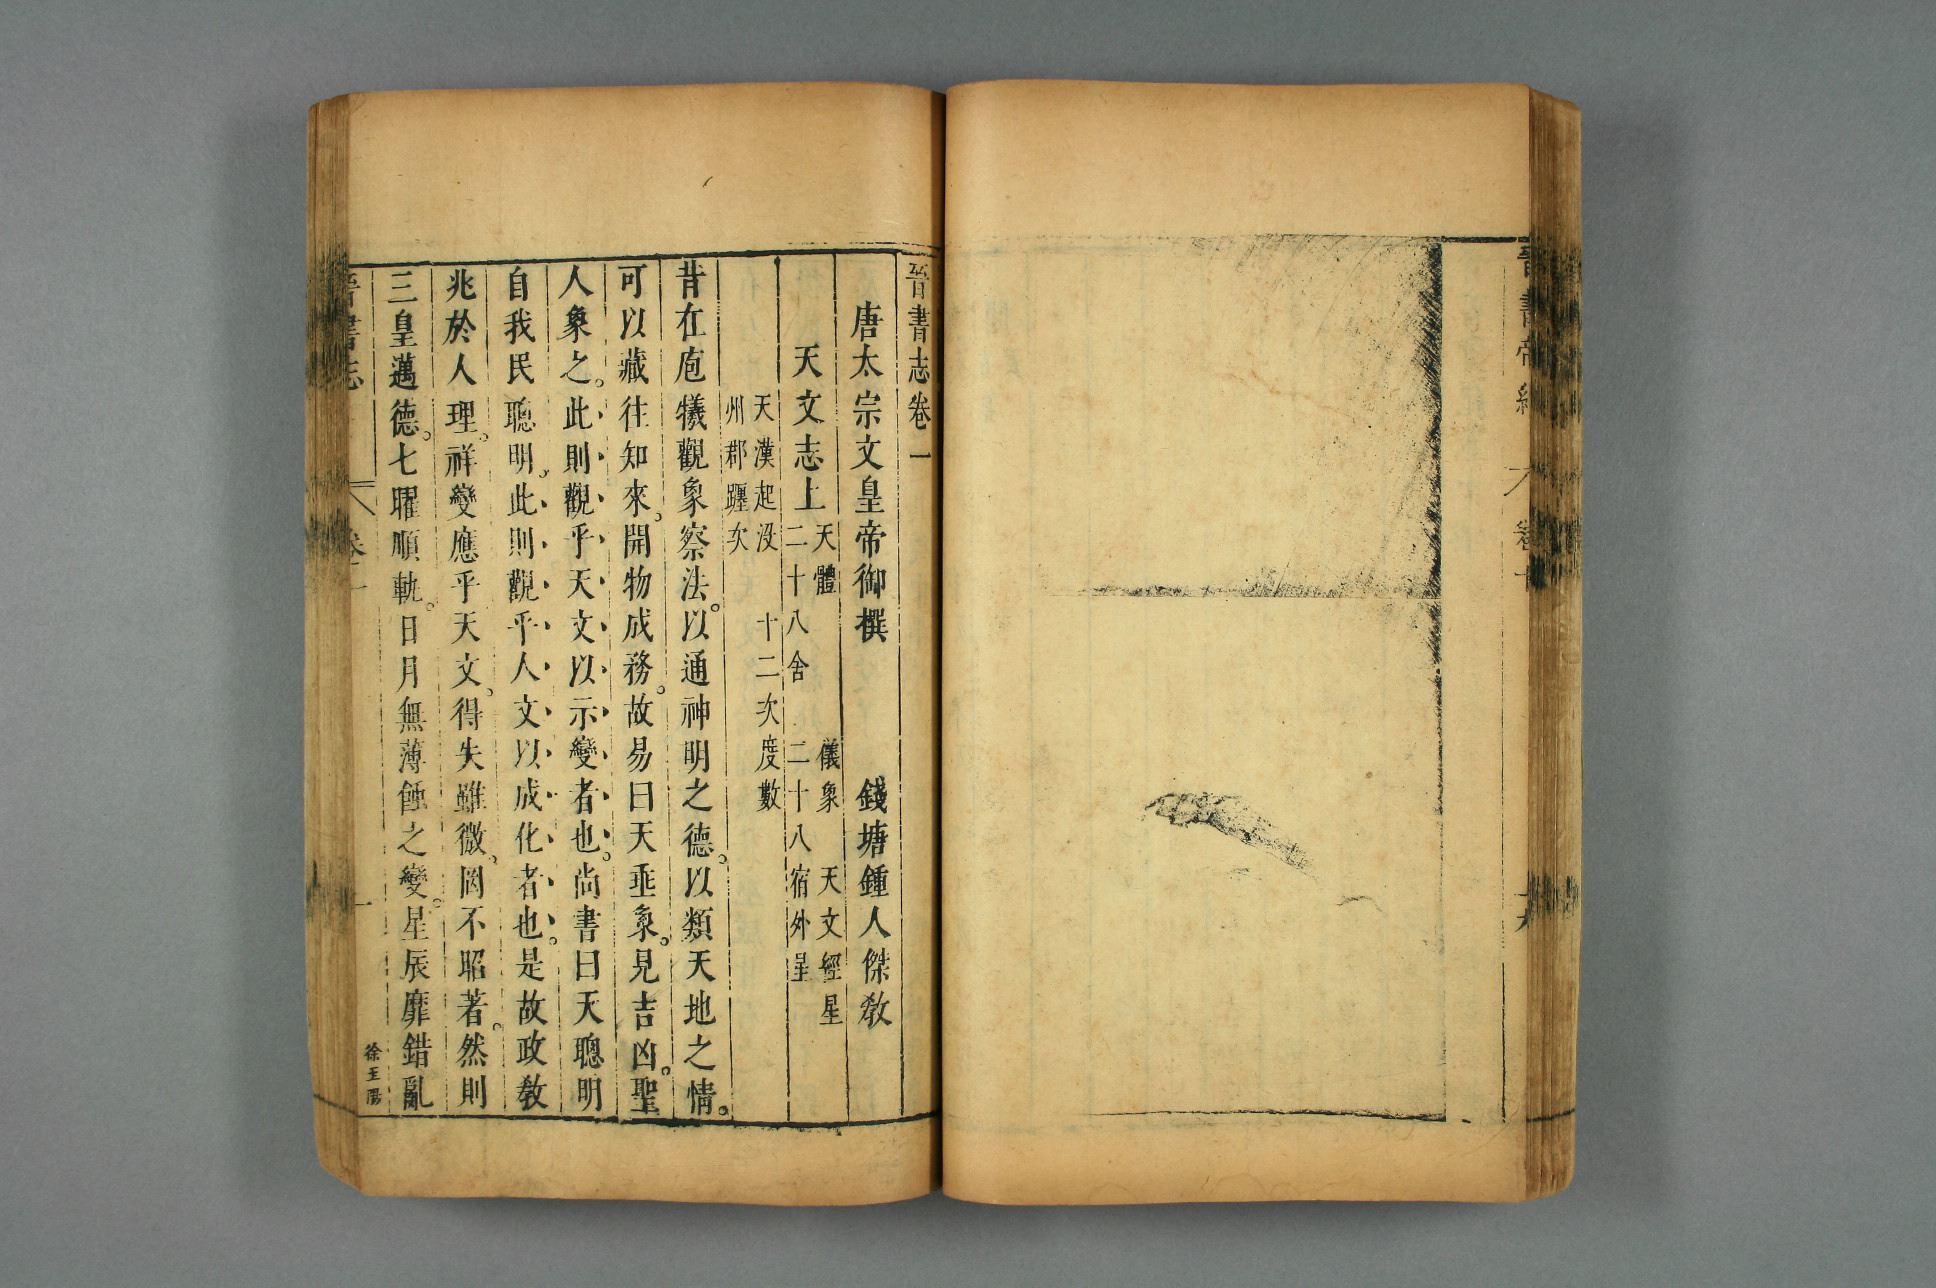 晉書帝紀
卷十
十九
晉書志卷一
唐太宗文皇帝御撰 錢塘鍾人傑敎
天文志上 天體 儀象 天文經星
二十八舍 二十八宿外星
天漢起没 十二次度數
州郡躔次
昔在庖犧觀象察法。以通神明之德。以類天地之情。
可以藏往知來。開物成務。故易曰天垂象。見吉凶。聖
人象之。此則觀乎天文以示變者也。尚書曰天聰明
自我民聰明。此則觀乎人文以成化者也。是故政敎
兆於人理。祥變應乎天文。得失雖微。罔不昭著。然則
三皇邁德。七曜順軌。日月無薄蝕之變。星辰靡錯亂
晉書志
卷一
一